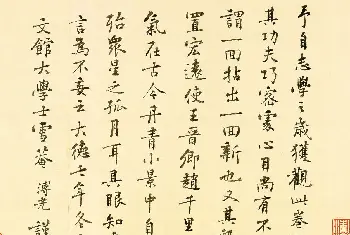 予自志學之歲獲觀此卷
其功夫巧密處心目尚有不
謂一回拈出一回新也又其設
置宏遠使王晉卿趙千里
氣在古今丹青小景中自
殆眾星之孤月耳具眼知
言為不妄云大德七年冬
文館大學士雪菴溥光謹